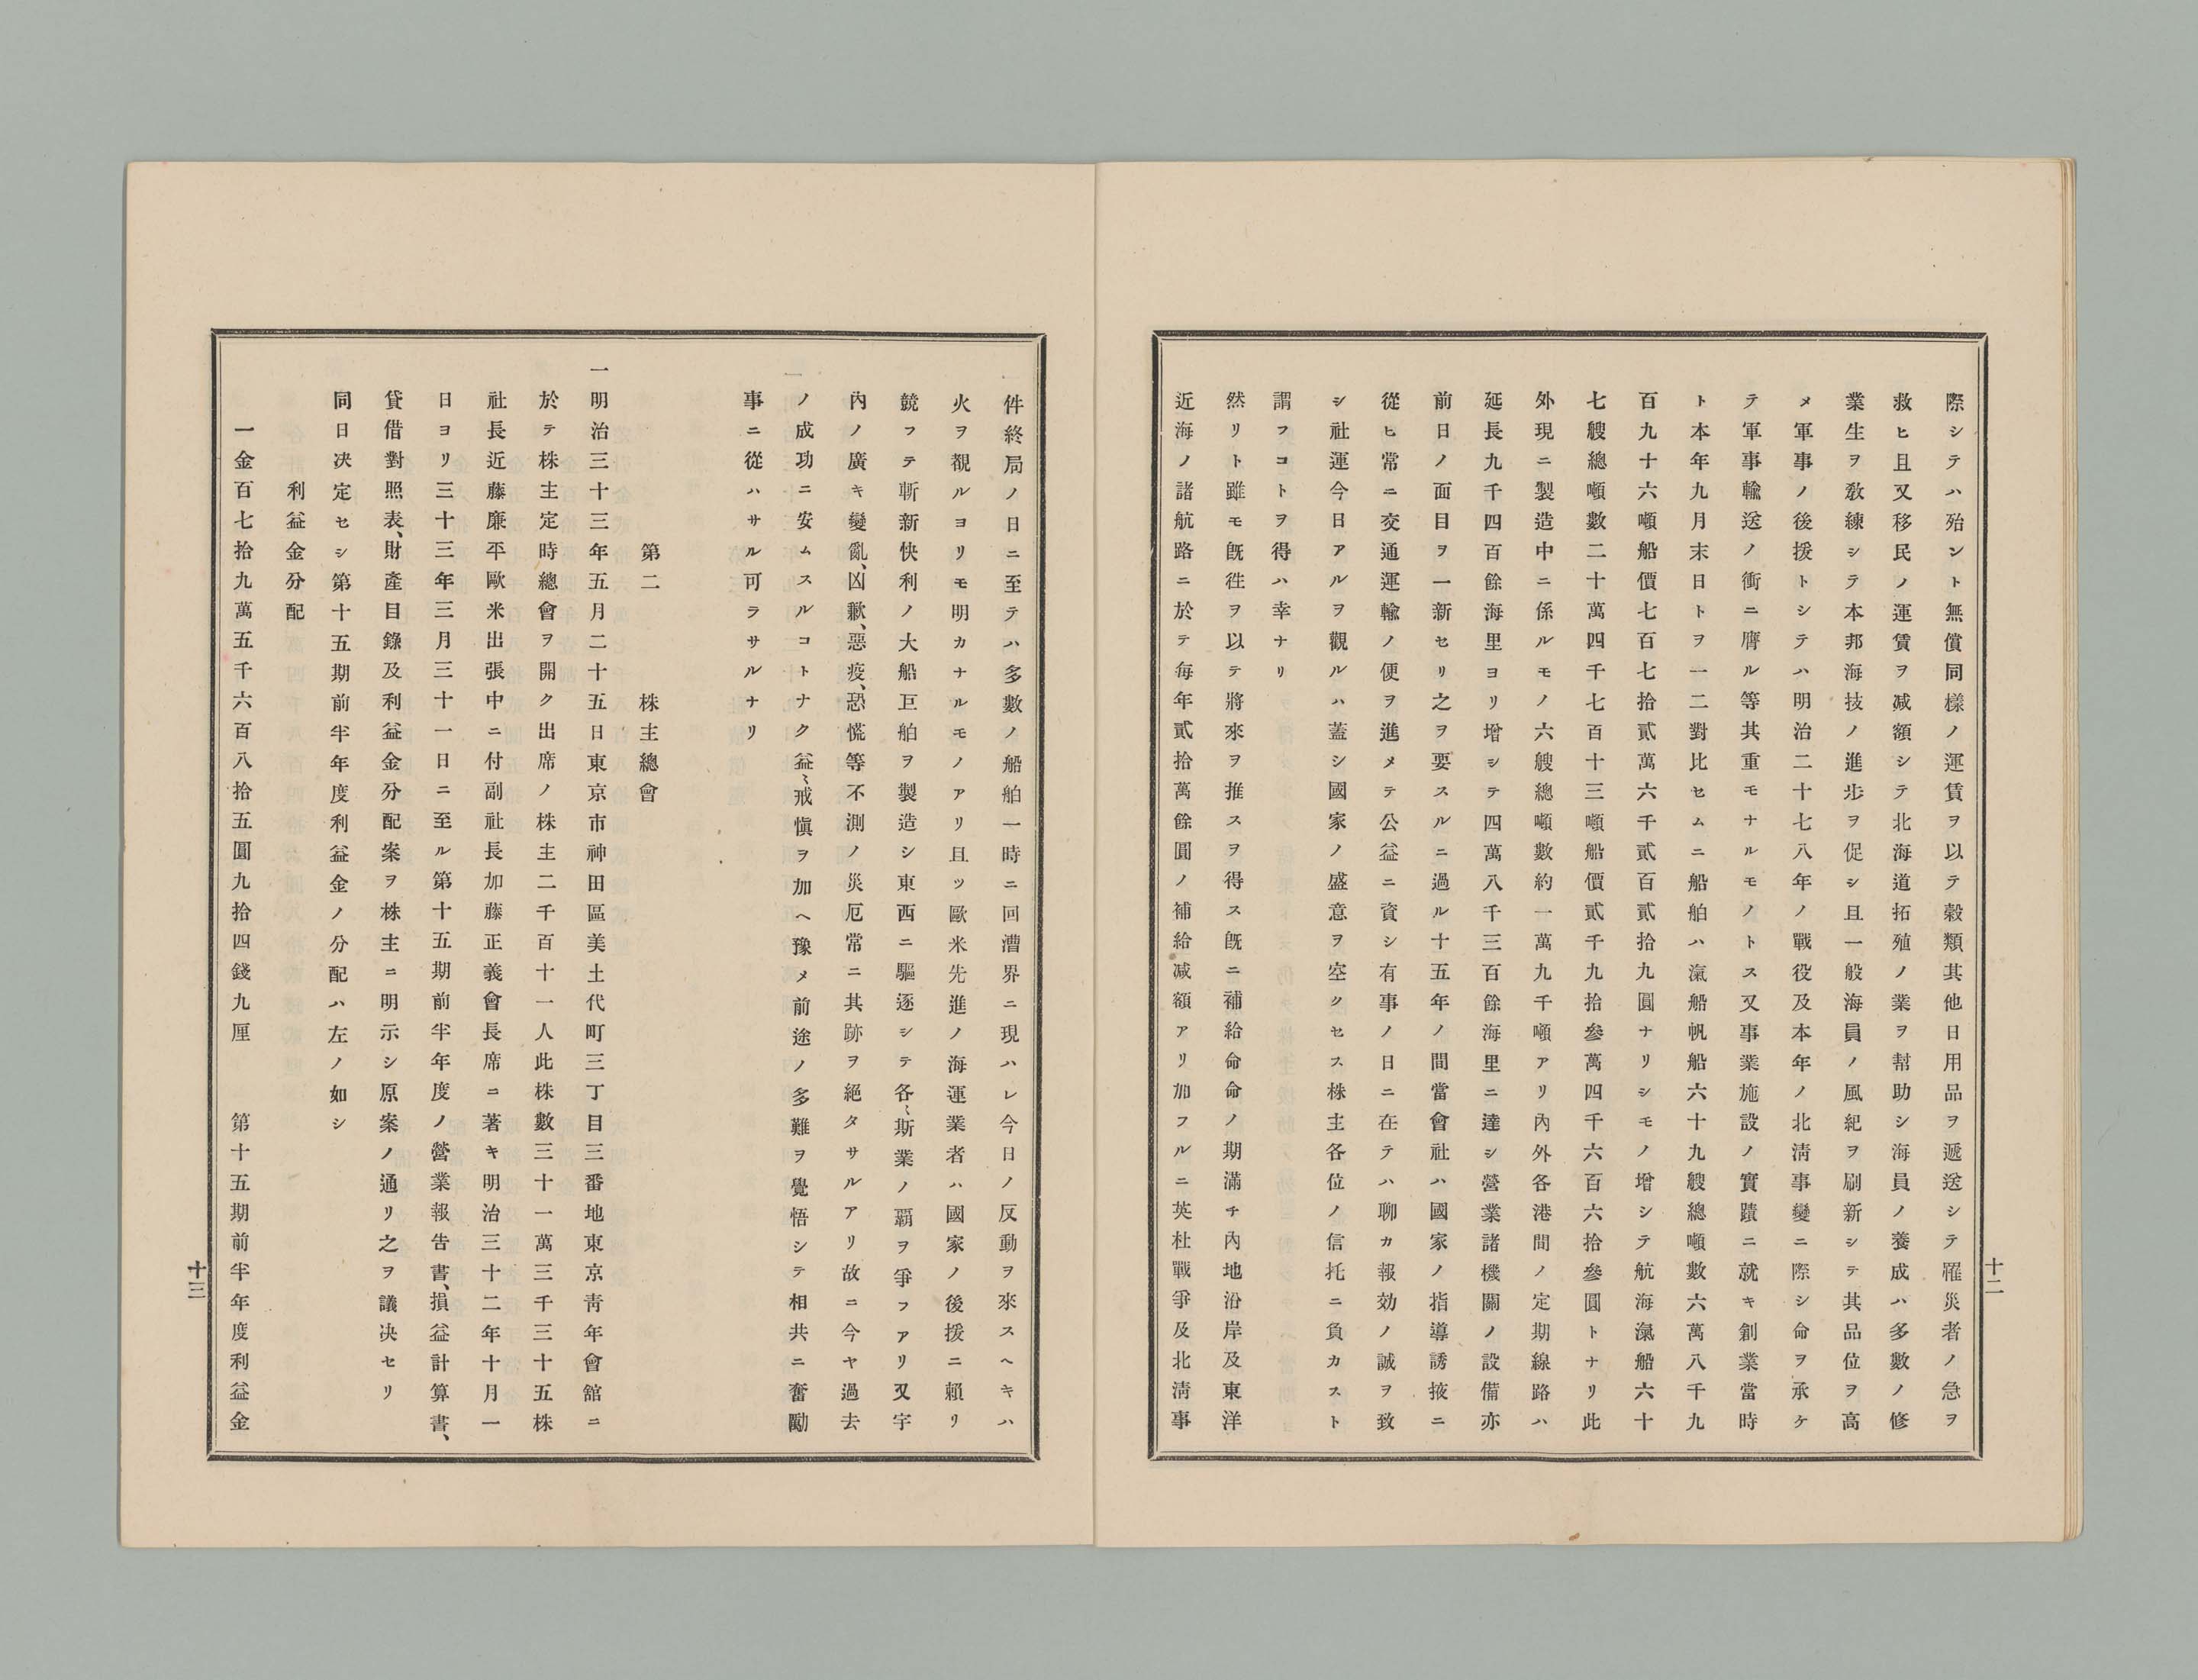 際シテハ殆ント無償同樣ノ運賃ヲ以テ穀類其他日用品ヲ遞送シテ罹災者ノ急ヲ
救ヒ且又移民ノ運賃ヲ减額シテ北海道拓殖ノ業ヲ幇助シ海員ノ養成ハ多數ノ修
業生ヲ敎練シテ本邦海技ノ進步ヲ促シ且一般海員ノ風紀ヲ刷新シテ其品位ヲ高
メ軍事ノ後援トシテハ明治二十七八年ノ戰役及本年ノ北淸事變ニ際シ命ヲ承ケ
テ軍事輸送ノ衝ニ膺ル等其重モナルモノトス又事業施設ノ實蹟ニ就キ創業當時
ト本年九月末日トヲ一二對比セムニ船舶ハ滊船帆船六十九艘總噸數六萬八千九
百九十六噸船價七百七拾貳萬六千貳百貳拾九圓ナリシモノ增シテ航海滊船六十
七艘總噸數二十萬四千七百十三噸船價貳千九拾參萬四千六百六拾參圓トナリ此
外現ニ製造中ニ係ルモノ六艘總噸數約一萬九千噸アリ內外各港間ノ定期線路ハ
延長九千四百餘海里ヨリ增シテ四萬八千三百餘海里ニ達シ營業諸機關ノ設備亦
前日ノ面目ヲ一新セリ之ヲ要スルニ過ル十五年ノ間當會社ハ國家ノ指導誘掖ニ
從ヒ常ニ交通運輸ノ便ヲ進メテ公益ニ資シ有事ノ日ニ在テハ聊カ報効ノ誠ヲ致
シ社運今日アルヲ觀ルハ蓋シ國家ノ盛意ヲ空クセス株主各位ノ信托ニ負カスト
謂フコトヲ得ハ幸ナリ
然リト雖モ旣徃ヲ以テ將來ヲ推スヲ得ス旣ニ補給命令ノ期滿チ內地沿岸及東洋
近海ノ諸航路ニ於テ每年貳拾萬餘圓ノ補給减額アリ加フルニ英杜戰爭及北淸事
十二
件終局ノ日ニ至テハ多數ノ船舶一時ニ回漕界ニ現ハレ今日ノ反動ヲ來スヘキハ
火ヲ覩ルヨリモ明カナルモノアリ且ツ歐米先進ノ海運業者ハ國家ノ後援ニ賴リ
競フテ斬新快利ノ大船巨舶ヲ製造シ東西ニ驅逐シテ各〻斯業ノ覇ヲ爭フアリ又宇
內ノ廣キ變亂、凶歉、惡疫、恐慌等不測ノ災厄常ニ其跡ヲ絕タサルアリ故ニ今ヤ過去
ノ成功ニ安ムスルコトナク益〻戒愼ヲ加ヘ豫メ前途ノ多難ヲ覺悟シテ相共ニ奮勵
事ニ從ハサル可ラサルナリ
第二　株主總會
一明治三十三年五月二十五日東京市神田區美土代町三丁目三番地東京靑年會舘ニ
於テ株主定時總會ヲ開ク出席ノ株主二千百十一人此株數三十一萬三千三十五株
社長近藤廉平歐米出張中ニ付副社長加藤正義會長席ニ著キ明治三十二年十月一
日ヨリ三十三年三月三十一日ニ至ル第十五期前半年度ノ營業報告書、損益計算書、
貸借對照表、財產目錄及利益金分配案ヲ株主ニ明示シ原案ノ通リ之ヲ議决セリ
同日决定セシ第十五期前半年度利益金ノ分配ハ左ノ如シ
利益金分配
一金百七拾九萬五千六百八拾五圓九拾四錢九厘　第十五期前半年度利益金
十三